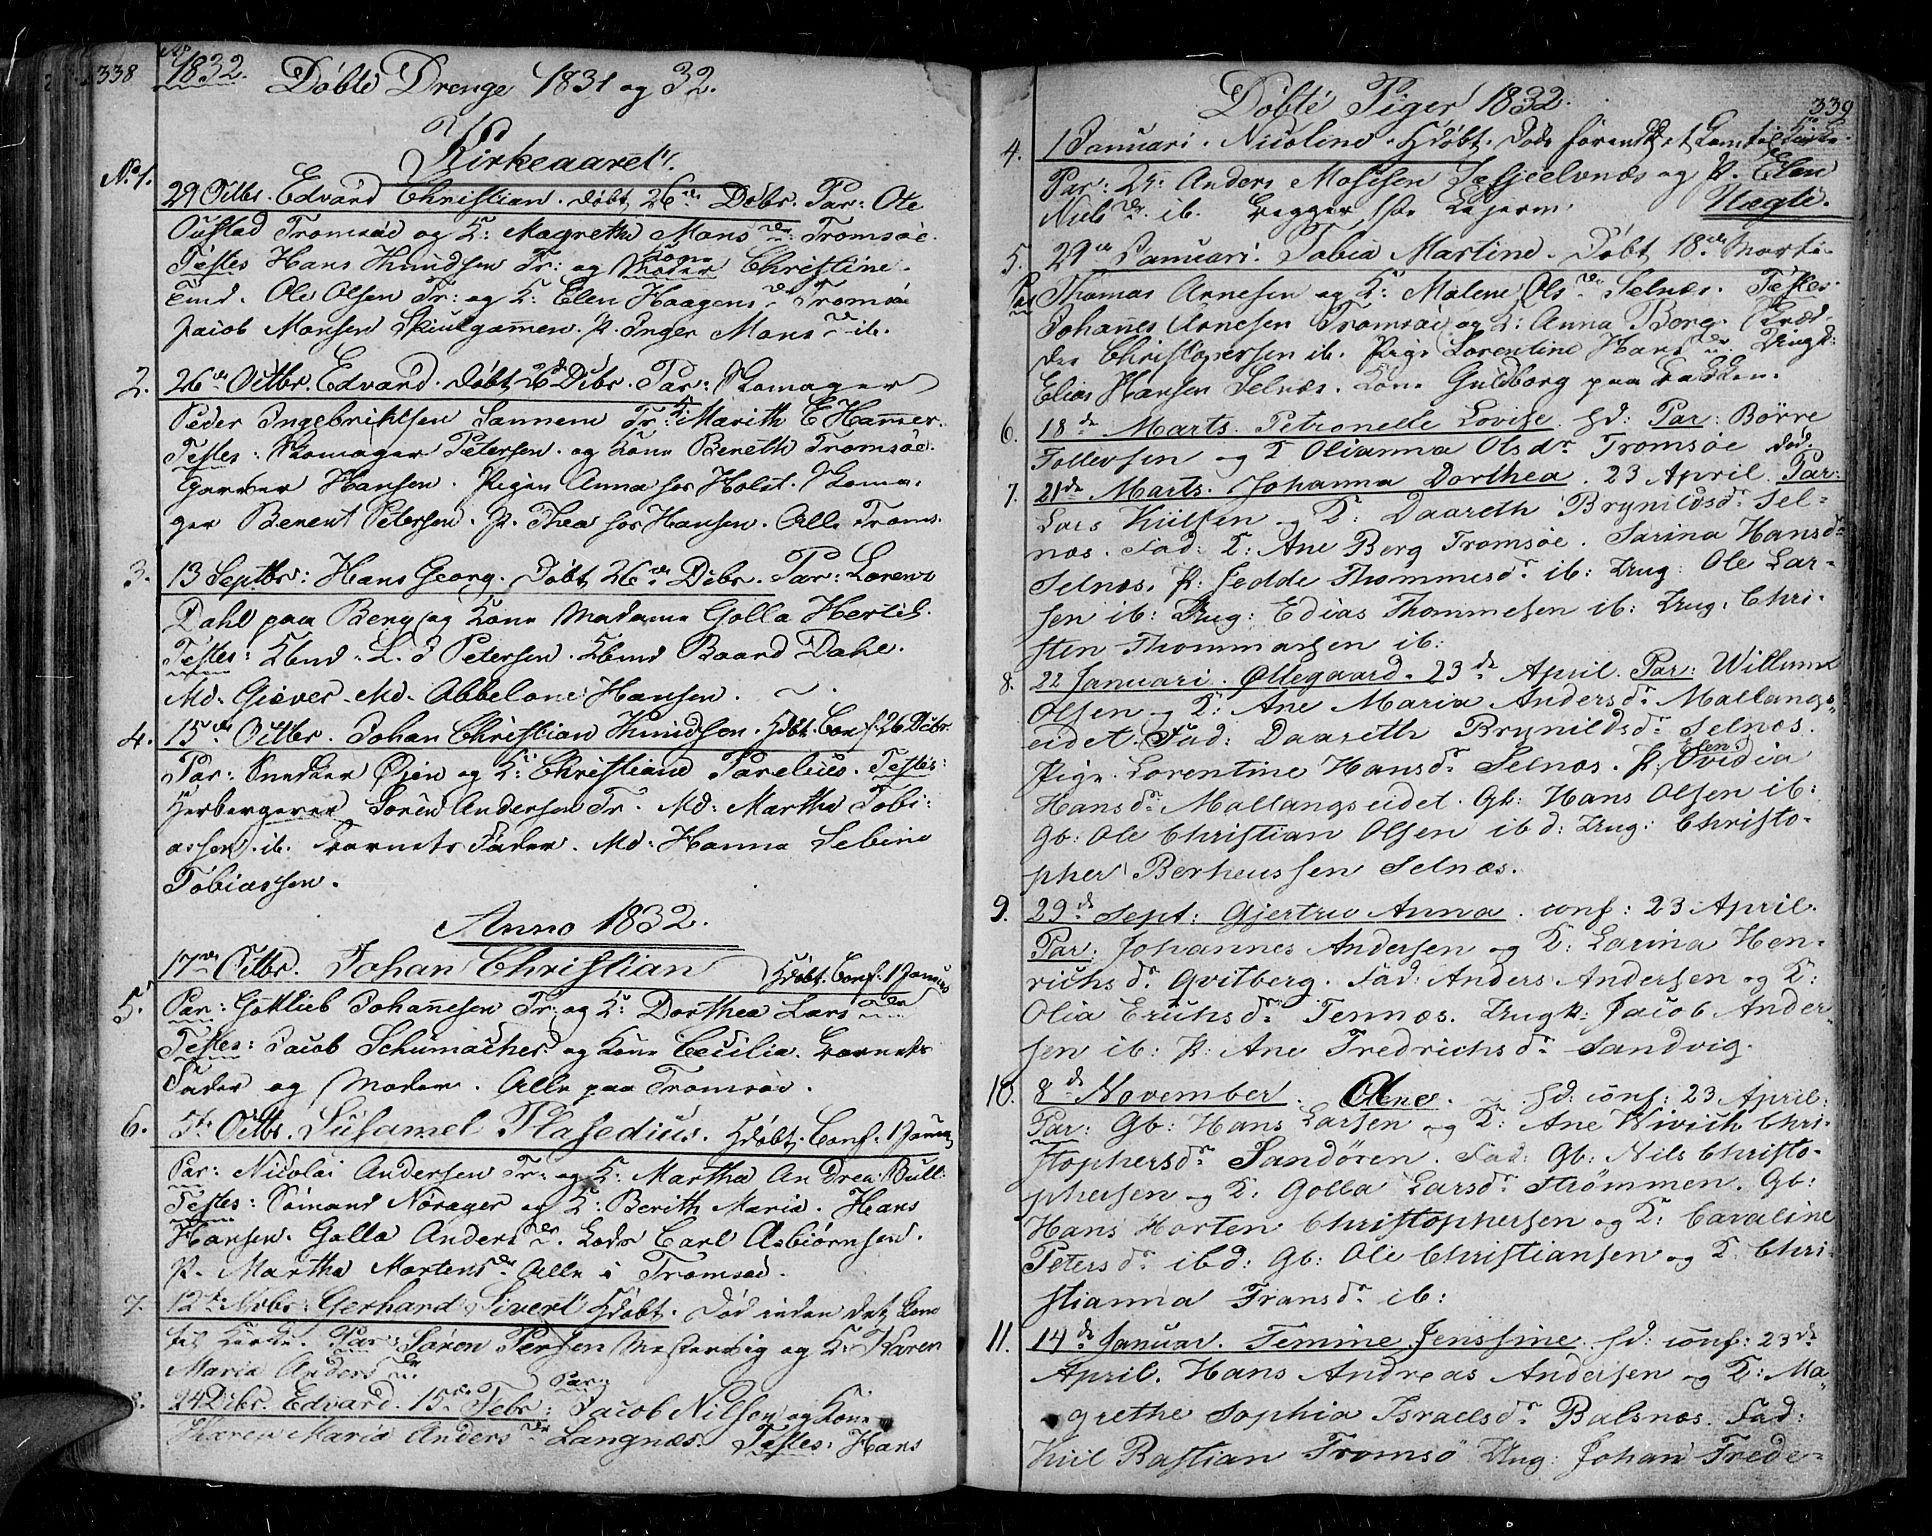 338
Ao 1832. Döbte Drenge 1831 og 32.
Kirkeaaret.
No 1.
29 Octbr. Edvard Christian. döbt 26de Debr. Par: Ole
Oustad Tromsöe og K: Magrethe Mons dr: Tromsöe.
Testes Hans Knudsen Tr: og Kone Moder Christine.
Ole Olsen Tr: og K: Elen Haagens dr Tromsöe
Jacob Monsen Skiulgammen. P. Inger Mons dr ib.
2. 26de Octbr. Edvard. döbt 26d Debr. Par: Skomager
Peder Ingebrihtsen Sannem Tr: K: Marith E Hammer.
Testes: Skomager Petersen. og Kone Bereth Tromsöe.
Garver Hansen. Pigen Anna hos Holst. Skoma-
ger Benent Petersen. P. Thea hos Hansen. Alle Troms.
3. 13 Septbr: Hans Georg. döbt 26de Debr. Par: Lorenz
Dahl paa Berg og Kone Madame Golla Hertel.
Testes: Kbmd. L. J Petersen. Kbmd Baard Dahl.
Md. Giæver. Md. Abbelone Hansen.
4. 15de Octbr. Johan Christian Knudsen. Hdbt. Conf. 26 Debr.
Par: Snedker Öien og K: Christiane Parelius. Testes:
Herbergerer Sören Andersen Tr. Md: Martha Tobi-
assen. ib. Barnets Fader. Md: Hanna Sebine
Tobiassen.
Anno 1832.
5. 17de Octbr. Johan Christian Hdöbt. Conf. 1 Januar
Par: Gotlieb Johannesen Tr: og K: Dorthea Lars dr
Testes: Jacob Schumacher og Kone Cecilia. Barnets
Fader og Moder. Alle paa Tromsöe.
6. 5te Octbr. Susamel Plasedius. Hdöbt. Conf. 1 Januar
Par: Nicolai Andersen Tr: og K: Martha Andrea Bull.
Testes: Sömand Norager og K: Berith Maria. Hans
Hansen. Golla Anders dr. Lods Carl Asbiörnsen.
P. Martha Mortens dr Alle i Tromsöe.
7. 12te Novbr: Gerhard Sivert Hdöbt. Död inden det kom
til Kirke. Par: Sören Persen Mestervig og K: Karen
Maria Anders dr
8. 24 Debr. Edvard. 15de Febr: Par: Jacob Nilsen og Kone
Karen Maria Anders dr Langnæs. Testes: Hans
Döbte Piger 1832.
339
4. 1 Januari. Nicoline. Hdöbt. Döde förend det kom til Kirke.
Par: Anders Mosesen Selfjeelvnæs og P. Elen
Niels dr. ib. Begges Leierm. Uægte.
5. 29de Januari. Tobia Martine. Döbt 18de Marti
Par Thomas Arnesen og K: Malene Ols dr Selnæs. Testes.
Johannes Arnesen Tromsöe og K: Anna Berg.
Christophersen ib. Pige Lorentine Hans dr Ungk:
Elias Hansen Selnæs. Kone Guldborg paa Bakken.
6. 18de Marts. Petronelle Lovise. hd: Par: Börre
Tollevsen og K Olianna Olsdr Tromsöe död.
7. 21de Marts. Johanna Dorthea. 23 April. Par:
Lars Kiilsen og K: Daareth Brynildsdr Sel-
næs. Fad: K: Ane Berg Tromsöe. Sarina Hansdr
Selnæs. P: Hedde Thommesdr ib: Ung: Ole Lar-
sen ib: Ung: Edias Thommesen ib: Ung. Chri-
sten Thommassen ib:
8. 22 Januari. Öllegaard. 23de April. Par: Willum
Olsen og K: Ane Maria Andersdr Mallangs-
eidet. Fad: Daareth Brynildsdr Selnæs.
Pige. Lorentine Hansdr Selnæs. P: Elen: Ovidia
Hansdr Mallangseidet. Gb: Hans Olsen ib:
Gb: Ole Christian Olsen ibd: Ung: Christo-
pher Berheussen Selnæs.
9. 29de Sept: Gjertru Anna. conf: 23 April.
Par: Johannes Andersen og K: Larina Hen-
richsdr Qvitberg. Fad: Anders Andersen og K:
Olia Erichsdr Tennæs. Ungk: Jacob Ander-
sen ib: P: Ane Fredrichsdr Sandvig.
10. 8de November. Olene. hd: conf: 23 April:
Par: Gb: Hans Larsen og K: Ane Wivich Chri-
stophersdr Sandören. Fad: Gb: Nils Christo-
phersen og K: Golla Larsdr Strömmen. Gb:
Hans Morten Christophersen og K: Cavaline
Petersdr ibd: Gb: Ole Christiansen og K Chri-
stianna Fransdr ib:
11. 14de Januar. Temine Jenssine. hd: conf: 23de
April. Hans Andreas Andersen og K: Ma-
grethe Sophia Israelsdr Balsnæs. Fad:
Kiil Bastian Tromsö Ung: Johan Frede-